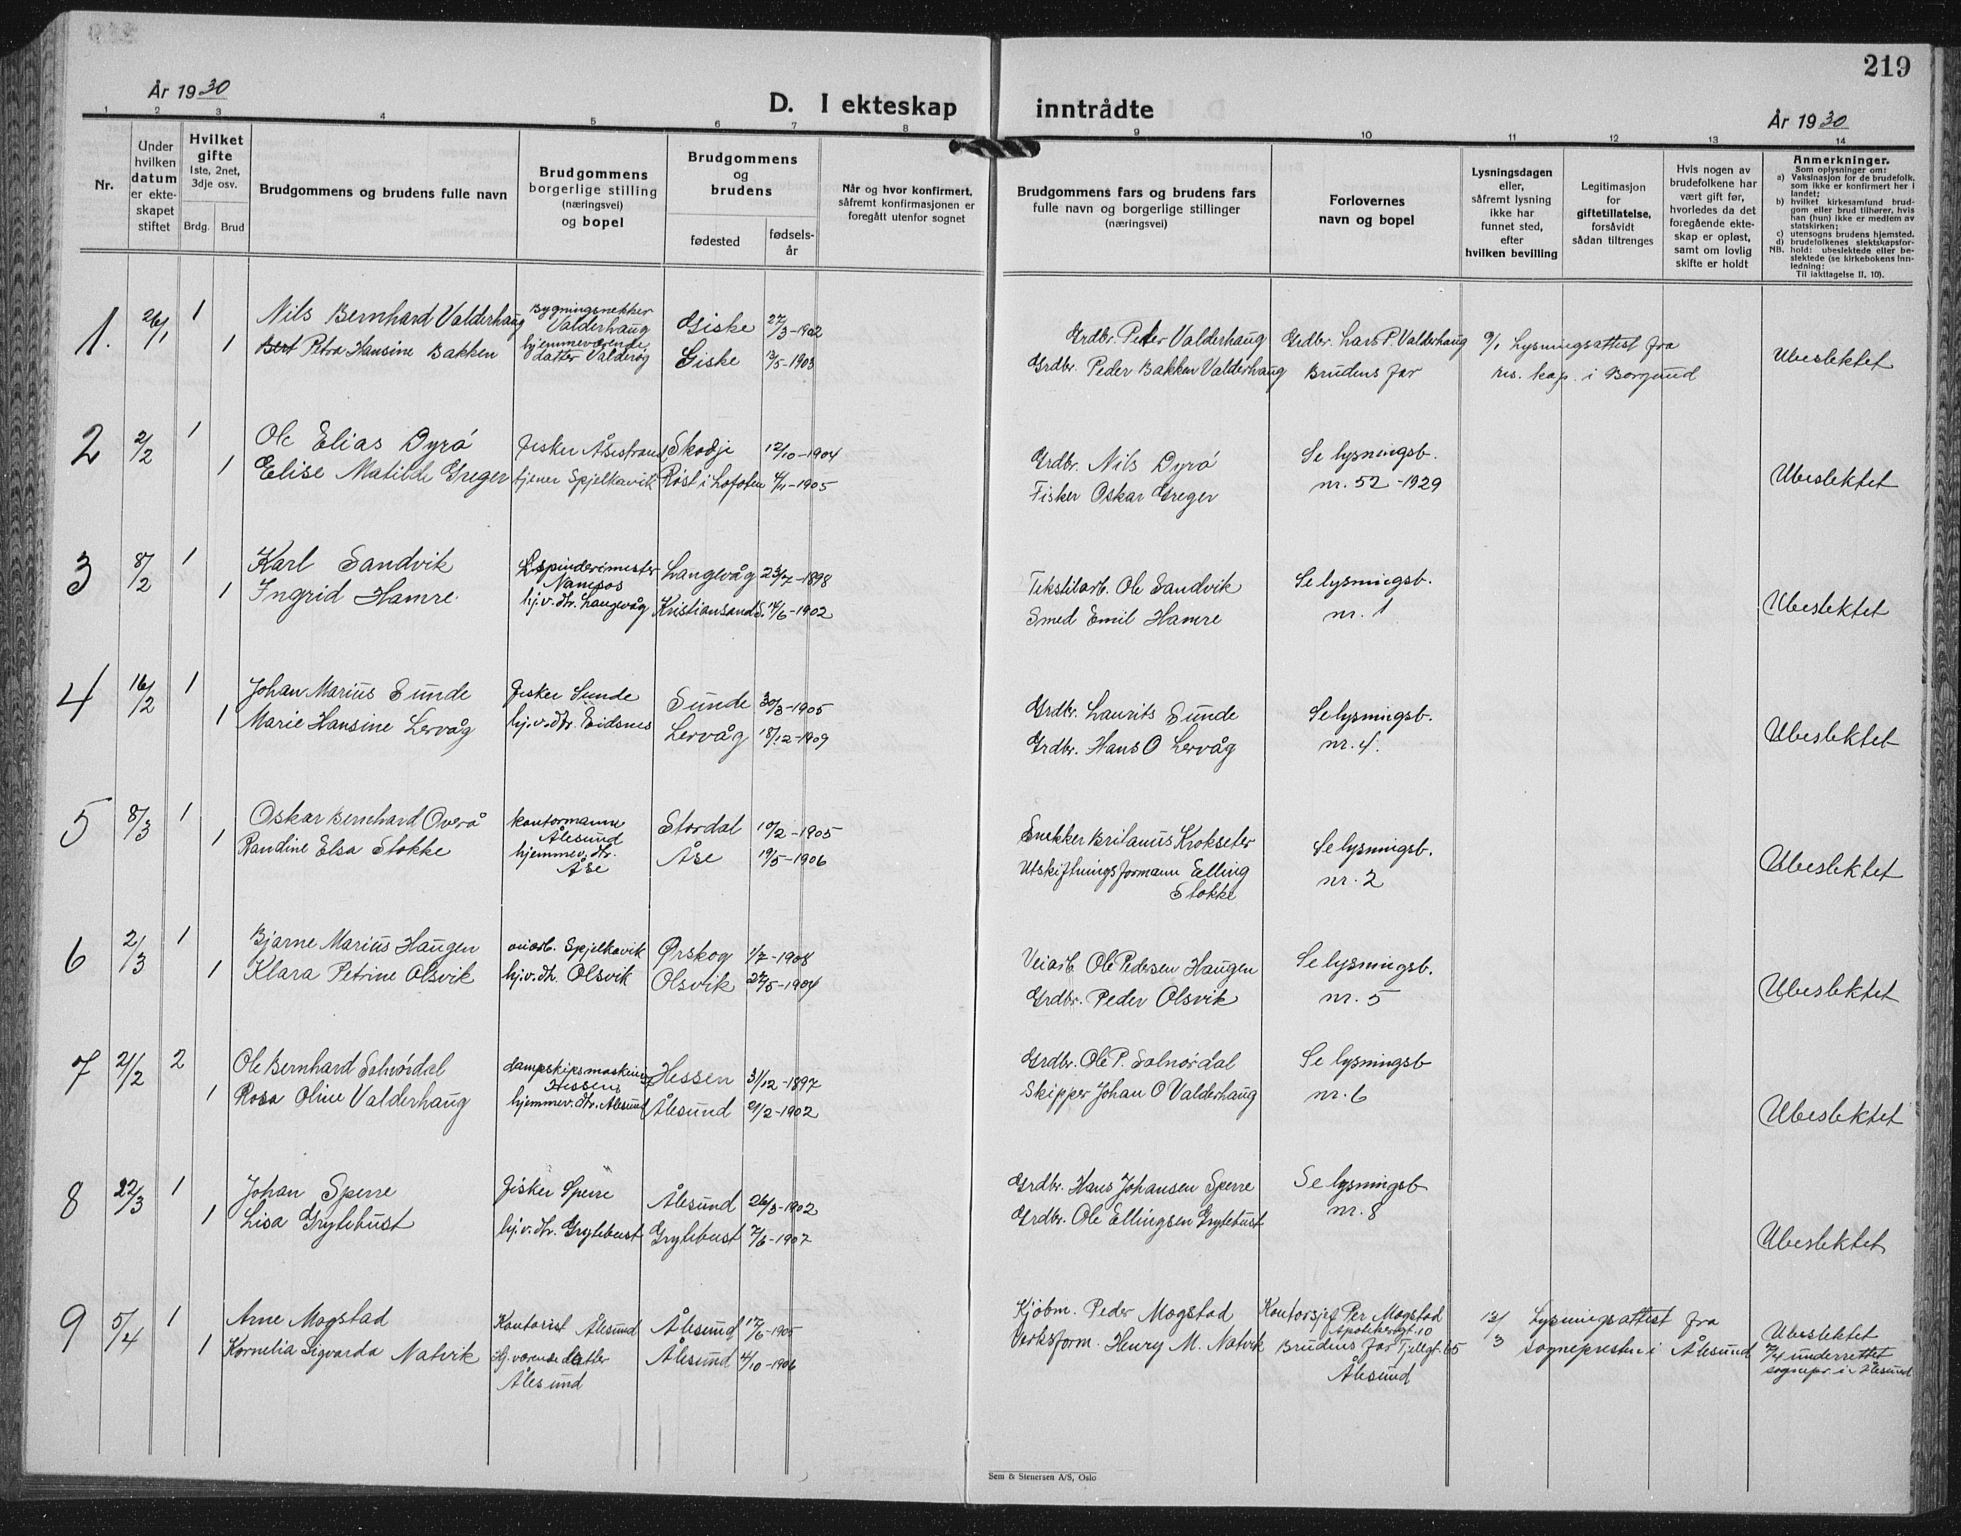 219
År 1930
D. I ekteskap inntrådte
År 1930
1 2 3 4 5 6 7 8 9 10 11 12 13 14
Nr.
Under
hvilken
datum
er ekte-
skapet
stiftet
Hvilket
gifte
1ste, 2net,
3dje osv.
Brdg. Brud
Brudgommens og brudens fulle navn
Brudgommens
borgerlige stilling
(næringsvei)
og bopel
Brudgommens
og
brudens
fødested
fødsels-
år
Når og hvor konfirmert,
såfremt konfirmasjonen er
foregått utenfor sognet
Brudgommens fars og brudens fars
fulle navn og borgerlige stillinger
(næringsvei)
Forlovernes
navn og bopel
Lysningsdagen
eller,
såfremt lysning
ikke har
funnet sted,
efter
hvilken bevilling
Legitimasjon
for
giftetillatelse,
forsåvidt
sådan tiltrenges
Hvis nogen av
brudefolkene har
vært gift før,
hvorledes da det
foregående ekte-
skap er opløst,
samt om lovlig
skifte er holdt
Anmerkninger.
Som oplysninger om:
a) Vaksinasjon for de brudefolk,
som ikke er konfirmert her i
landet;
b) hvilket kirkesamfund brud-
gom eller brud tilhører, hvis
han (hun) ikke er medlem av
statskirken;
c) utensogns brudens hjemsted.
d) brudefolkenes slektskapsfor-
hold: ubeslektede eller be-
slektede (se kirkebokens Inn-
ledning:
NB. Til iakttagelse II, 10).
1. 26/1 1 Nils Bernhard Valderhaug Bygningsnekker Valderhaug Giske 27/3-1902 Grdbr. Peder Valderhaug Grdbr. Lars P. Valderhaug Lysningsattest fra
1 Petra Hansine Bakken hjemmeværende datter Valderøy Giske 3/5-1903 Grdbr. Peder Bakken Valderhaug Brudens far res. kap. i Borgund Ubeslektet
2 2/2 1 Ole Elias Dyrø fisker Åsestrand Skodje 12/10-1904 Grdbr. Nils Dyrø Se lysningsb.
1 Elise Matilde Greger tjener Spjelkavik Røst i Lofoten 4/11-1905 Fisker Oskar Greger nr. 52-1929 Ubeslektet
3 8/2 1 Karl Sandvik spinderimester Namsos Langevåg 23/7-1898 Tekstilarb. Ole Sandvik Se lysningsb.
1 Ingrid Hamre hj.v. dtr. Langevåg Kristiansand S. 14/6-1902 Smed Emil Hamre nr. 1 Ubeslektet
4 16/2 1 Johan Marius Sunde fisker Sunde Sunde 30/3-1905 Grdbr. Laurits Sunde Se lysningsb.
1 Marie Hansine Lervåg hj.v. dtr. Eidsnes Lervåg 18/12-1909 Grdbr. Hans O Lervåg nr. 4. Ubeslektet
5 8/3 1 Oskar Bernhard Overå kontormann Ålesund Stordal 10/2-1905 Snekker Brilanus Krokseter Se lysningsb.
1 Randine Elsa Stokke hjemmev. dtr. Åse Åse 19/5-1906 Utskiftningsformann Elling Stokke nr. 2 Ubeslektet
6 2/3 1 Bjarne Marius Haugen Spjelkavik Ørskog 1/7-1908 Veiarb. Ole Pedersen Haugen Se lysningsb.
1 Klara Petrine Olsvik hj.v. dtr. Olsvik Olsvik 27/5-1904 Grdbr. Peder Olsvik nr. 5 Ubeslektet
7 21/2 2 Ole Bernhard Solnørdal dampskipsmaskinist Hessen Hessen 31/12-1897 Grdbr. Ole P. Solnørdal Se lysningsb
1 Rosa Oline Valderhaug hjemmev. dtr. Ålesund Ålesund 21/2-1902 Skipper Johan O Valderhaug nr. 6 Ubeslektet
8 22/3 1 Johan Sperre fisker Sperre Ålesund 26/3-1902 Grdbr. Hans Johansen Sperre Se lysningsb
1 Lisa Grytebust hj.v. dtr. Grytebust Grytebust 7/6-1907 Grdbr. Ole Ellingsen Grytebust nr. 8 Ubeslektet
9 5/4 1 Arne Mogstad Kontorist Ålesund Ålesund 17/6-1905 Kjøbm. Peder Mogstad Kontorsjef Per Mogstad Apotekergt. 10 13/3 Lysningsattest fra Ubeslektet
1 Kornelia Sigvarda Natvik hj.værende datter Ålesund Ålesund 4/10-1906 Verksform. Henry M. Natvik Brudens far Tjellegt. 65 Ålesund sognepresten i Ålesund 7/4 underrettet sognepr. i Ålesund
Sem & Stenersen A/S, Oslo